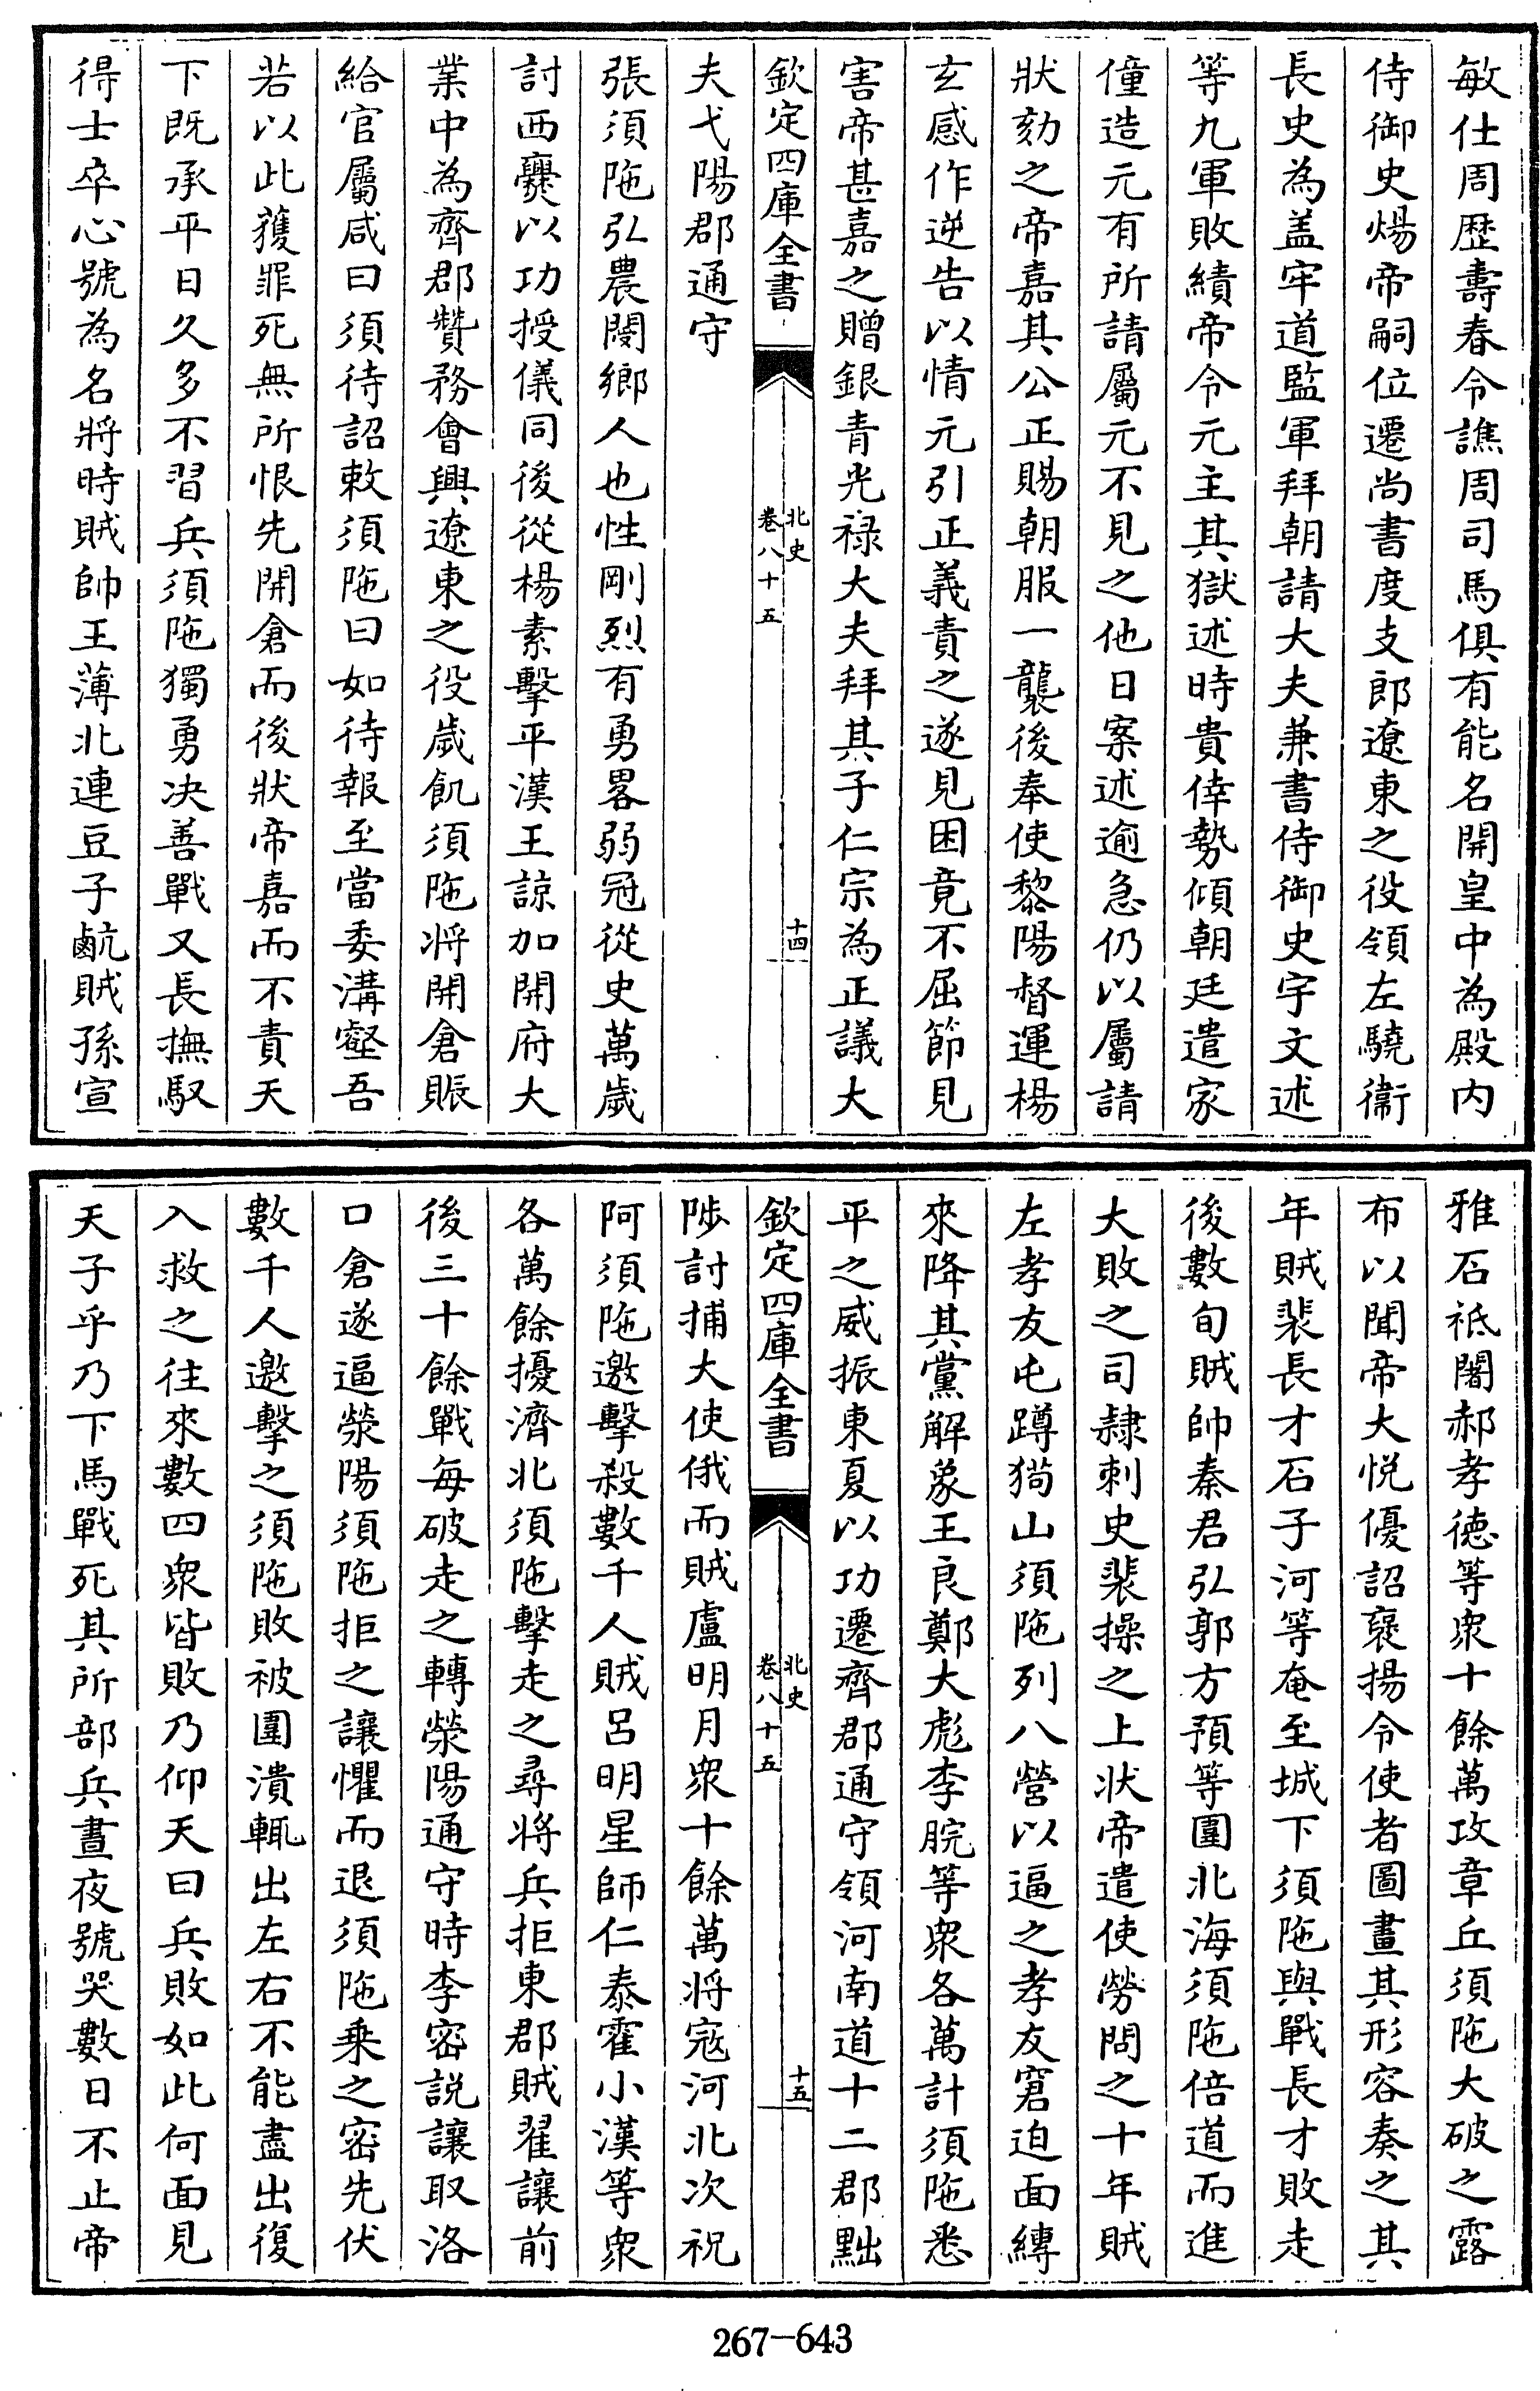 敏仕周歴壽春令譙周司馬俱有能名開皇中為殿内
侍御史煬帝嗣位遷尚書度支郎遼東之役領左驍衞
長史為盖牢道監軍拜朝請大夫兼書侍御史宇文述
等九軍敗績帝令元主其獄述時貴倖勢傾朝廷遣家
僮造元有所請屬元不見之他日案述逾急仍以屬請
狀劾之帝嘉其公正賜朝服一襲後奉使黎陽督運楊
玄感作逆告以情元引正義責之遂見困竟不屈節見
害帝甚嘉之贈銀青光禄大夫拜其子仁宗為正議大
欽定四庫全書
北史
卷八十五
十四
夫弋陽郡通守
張須陁弘農閿鄉人也性剛烈有勇畧弱冠從史萬歲
討西爨以功授儀同後從楊素擊平漢王諒加開府大
業中為齊郡贊務會興遼東之役歲飢須陁將開倉賑
給官屬咸曰須待詔敕須陁曰如待報至當委溝壑吾
若以此獲罪死無所恨先開倉而後狀帝嘉而不責天
下既承平日久多不習兵須陁獨勇决善戰又長撫馭
得士卒心號為名將時賊帥王薄北連豆子䴚賊孫宣
雅石祗闍郝孝德等衆十餘萬攻章丘須陁大破之露
布以聞帝大悦優詔褒揚令使者圖畫其形容奏之其
年賊裴長才石子河等奄至城下須陁與戰長才敗走
後數旬賊帥秦君弘郭方預等圍北海須陁倍道而進
大敗之司隷刺史裴操之上狀帝遣使勞問之十年賊
左孝友屯蹲狗山須陁列八營以逼之孝友窘迫面縛
來降其黨解象王良鄭大彪李脘等衆各萬計須陁悉
平之威振東夏以功遷齊郡通守領河南道十二郡黜
欽定四庫全書
北史
卷八十五
十五
陟討捕大使俄而賊盧明月衆十餘萬將寇河北次祝
阿須陁邀擊殺數千人賊呂明星師仁泰霍小漢等衆
各萬餘擾濟北須陁擊走之尋將兵拒東郡賊翟讓前
後三十餘戰每破走之轉滎陽通守時李密説讓取洛
口倉遂逼滎陽須陁拒之讓懼而退須陁乗之密先伏
數千人邀擊之須陁敗被圍潰輒出左右不能盡出復
入救之往來數四衆皆敗乃仰天曰兵敗如此何面見
天子乎乃下馬戰死其所部兵晝夜號哭數日不止帝
267-643